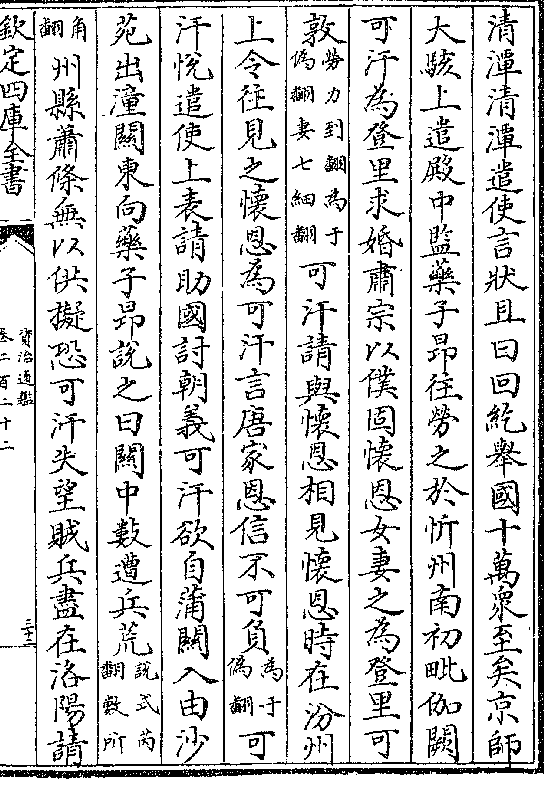 清潭清潭遣使言狀且曰回紇舉國十萬衆至矣京師
大駭上遣殿中監藥子昂往勞之於忻州南初毗伽闕
可汗為登里求婚肅宗以僕固懷恩女妻之為登里可
敦勞力到翻為于偽翻妻七細翻可汗請與懷恩相見懷恩時在汾州
上令往見之懷恩為可汗言唐家恩信不可負為于偽翻可
汗悅遣使上表請助國討朝義可汗欲自蒲關入由沙
苑出潼關東向藥子昂説之曰關中數遭兵荒説式芮翻數所
角翻州縣蕭條無以供擬恐可汗失望賊兵盡在洛陽請
欽定四庫全書
資治通鑑
卷二百二十二